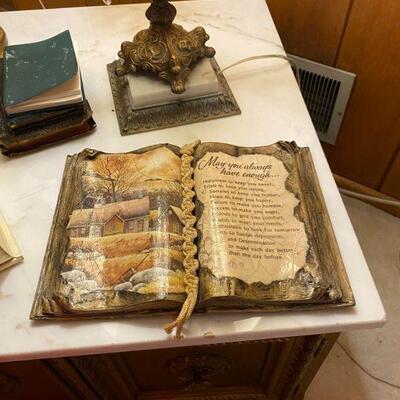 May you always
have enough...
Happiness to keep you sweet,
Trials to keep you strong,
Sorrows to keep you human,
Hope to keep you happy,
Failure to make you humble,
Success to make you eager,
Friends to give you comfort,
Wealth to meet your needs,
Enthusiasm to look for tomorrow,
Faith to banish depression,
and Determination
to make each day better
than the day before.